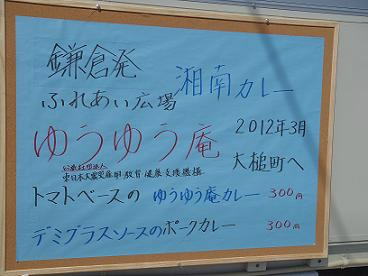 鎌倉発
湘南カレー
ふれあい広場
ゆうゆう庵
2012年3月
大槌町へ
公益社団法人
東日本大震災雇用・教育・健康支援機構
トマトベースの ゆうゆう庵カレー 300円
デミグラスソースのポークカレー 300円